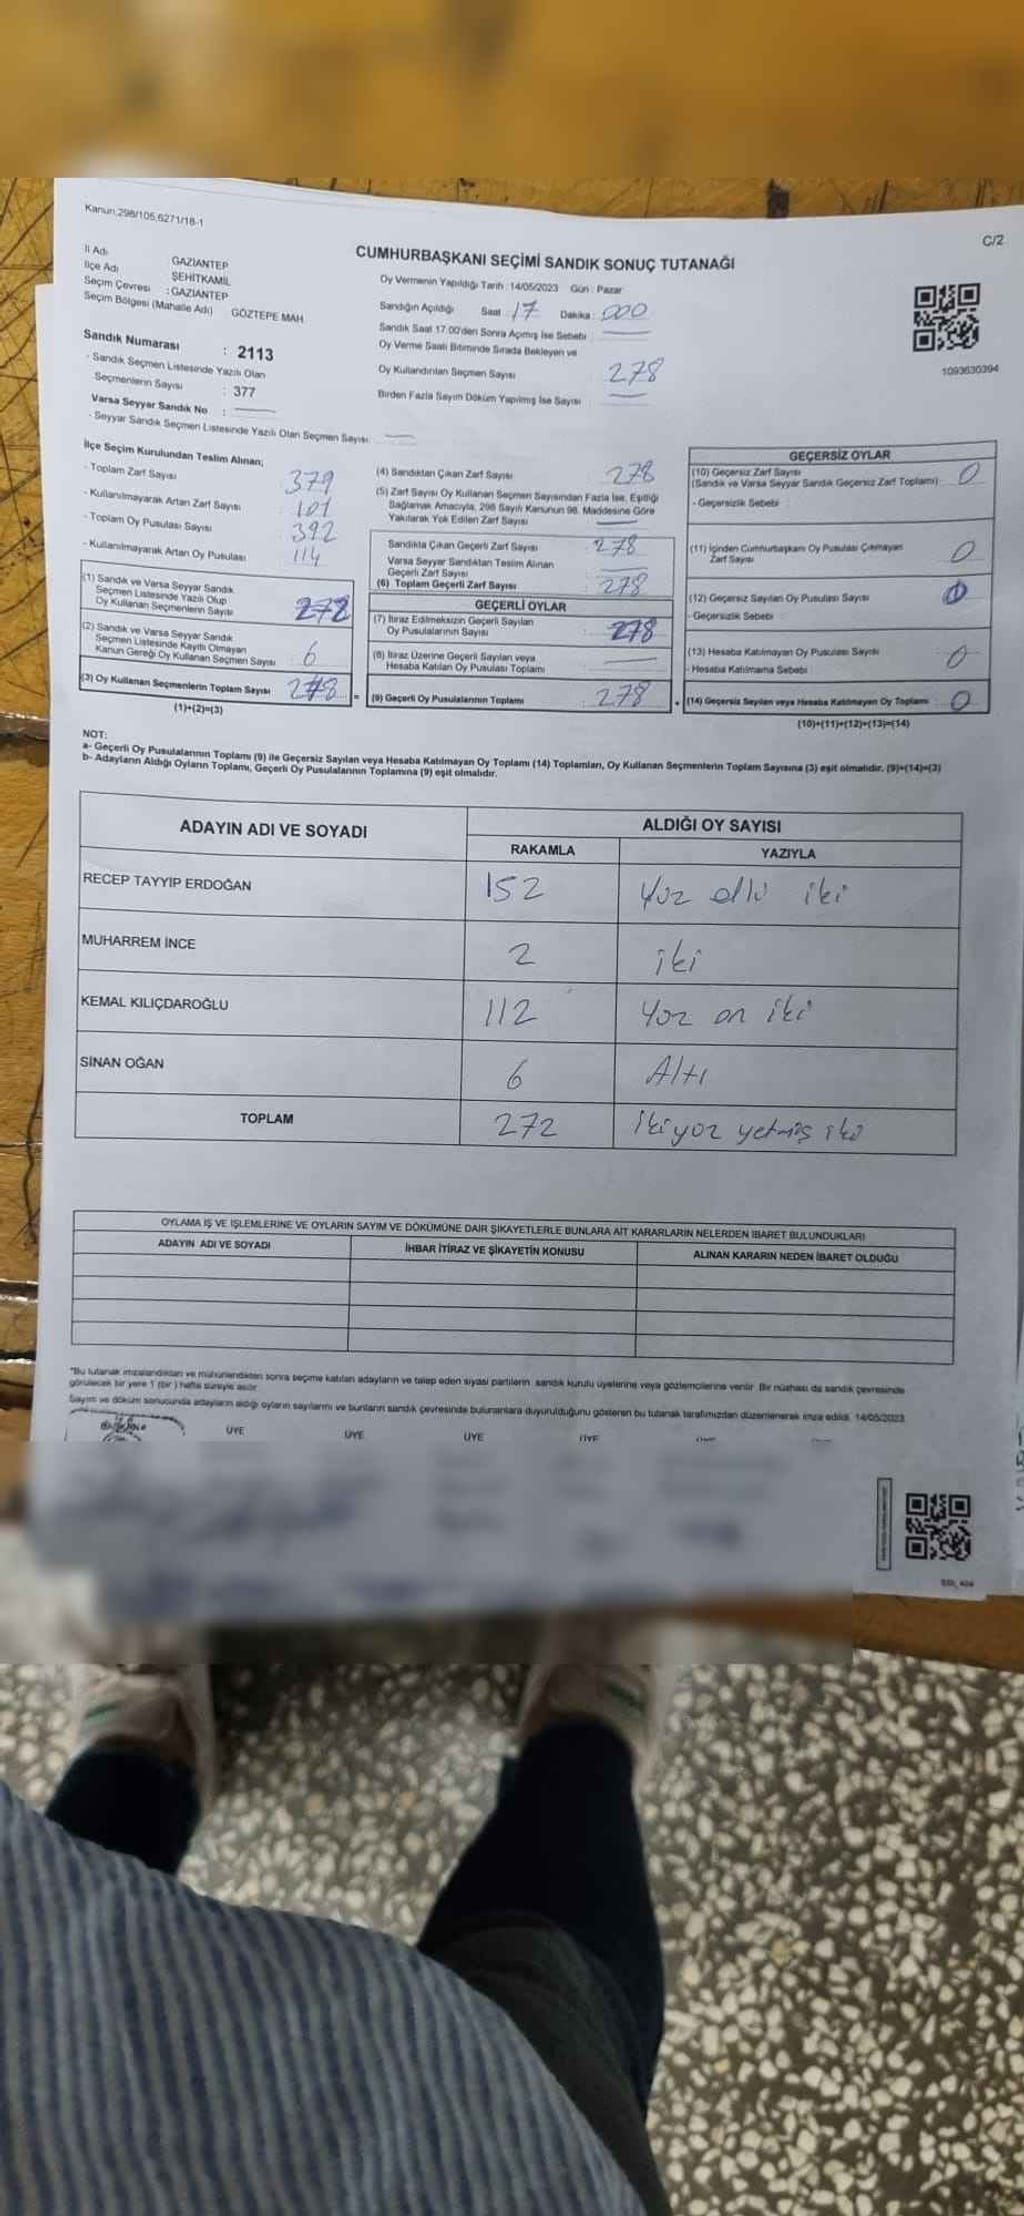 Kanun;298/105,6271/18-1
C/2
CUMHURBAŞKANI SEÇİMİ SANDIK SONUÇ TUTANAĞI
İl Adı GAZİANTEP
İlçe Adı ŞEHİTKAMİL
Seçim Çevresi : GAZİANTEP
Seçim Bölgesi (Mahalle Adı) GÖZTEPE MAH.
Oy Vermenin Yapıldığı Tarih : 14/05/2023 Gün : Pazar
Sandığın Açıldığı Saat : 17 Dakika : 000
Sandık Saat 17.00'den Sonra Açımış İse Sebebi :
Oy Verme Saati Bitiminde Sırada Bekleyen ve
Oy Kullandırılan Seçmen Sayısı 278
Birden Fazla Sayım Döküm Yapılmış İse Sayısı
1093630394
Sandık Numarası : 2113
- Sandık Seçmen Listesinde Yazılı Olan
Seçmenlerin Sayısı : 377
Varsa Seyyar Sandık No :
- Seyyar Sandık Seçmen Listesinde Yazılı Olan Seçmen Sayısı
İlçe Seçim Kurulundan Teslim Alınan;
- Toplam Zarf Sayısı 379
- Kullanılmayarak Artan Zarf Sayısı 101
- Toplam Oy Pusulası Sayısı 392
- Kullanılmayarak Artan Oy Pusulası 114
(1) Sandık ve Varsa Seyyar Sandık
Seçmen Listesinde Yazılı Olup
Oy Kullanan Seçmenlerin Sayısı 272
(2) Sandık ve Varsa Seyyar Sandık
Seçmen Listesinde Kayıtlı Olmayan
Kanun Gereği Oy Kullanan Seçmen Sayısı 6
(3) Oy Kullanan Seçmenlerin Toplam Sayısı 278 =
(1)+(2)=(3)
(4) Sandıktan Çıkan Zarf Sayısı 278
(5) Zarf Sayısı Oy Kullanan Seçmen Sayısından Fazla İse, Eşitliği
Sağlamak Amacıyla, 298 Sayılı Kanunun 98. Maddesine Göre
Yakılarak Yok Edilen Zarf Sayısı
Sandıkta Çıkan Geçerli Zarf Sayısı 278
Varsa Seyyar Sandıktan Teslim Alınan
Geçerli Zarf Sayısı
(6) Toplam Geçerli Zarf Sayısı 278
GEÇERLİ OYLAR
(7) İtiraz Edilmeksizin Geçerli Sayılan
Oy Pusulalarının Sayısı 278
(8) İtiraz Üzerine Geçerli Sayılan veya
Hesaba Katılan Oy Pusulası Toplamı
(9) Geçerli Oy Pusulalarının Toplamı 278 +
GEÇERSİZ OYLAR
(10) Geçersiz Zarf Sayısı 0
(Sandık ve Varsa Seyyar Sandık Geçersiz Zarf Toplamı)
- Geçersizlik Sebebi :
(11) İçinden Cumhurbaşkanı Oy Pusulası Çıkmayan
Zarf Sayısı 0
(12) Geçersiz Sayılan Oy Pusulası Sayısı 0
- Geçersizlik Sebebi :
(13) Hesaba Katılmayan Oy Pusulası Sayısı 0
- Hesaba Katılmama Sebebi :
(14) Geçersiz Sayılan veya Hesaba Katılmayan Oy Toplamı 0
(10)+(11)+(12)+(13)=(14)
NOT:
a- Geçerli Oy Pusulalarının Toplamı (9) ile Geçersiz Sayılan veya Hesaba Katılmayan Oy Toplamı (14) Toplamları, Oy Kullanan Seçmenlerin Toplam Sayısına (3) eşit olmalıdır. (9)+(14)=(3)
b- Adayların Aldığı Oyların Toplamı, Geçerli Oy Pusulalarının Toplamına (9) eşit olmalıdır.
ADAYIN ADI VE SOYADI ALDIĞI OY SAYISI
RAKAMLA YAZIYLA
RECEP TAYYİP ERDOĞAN 152 Yüz elli iki
MUHARREM İNCE 2 iki
KEMAL KILIÇDAROĞLU 112 Yüz on iki
SİNAN OĞAN 6 Altı
TOPLAM 272 İkiyüz yetmiş iki
OYLAMA İŞ VE İŞLEMLERİNE VE OYLARIN SAYIM VE DÖKÜMÜNE DAİR ŞİKAYETLERLE BUNLARA AİT KARARLARIN NELERDEN İBARET BULUNDUKLARI
ADAYIN ADI VE SOYADI İHBAR İTİRAZ VE ŞİKAYETİN KONUSU ALINAN KARARIN NEDEN İBARET OLDUĞU
*Bu tutanak imzalandıktan ve mühürlendikten sonra seçime katılan adayların ve talep eden siyasi partilerin sandık kurulu üyelerine veya gözlemcilerine verilir. Bir nüshası da sandık çevresinde
görülecek bir yere 1 (bir) hafta süreyle asılır.
Sayım ve döküm sonucunda adayların aldığı oyların sayılarını ve bunların sandık çevresinde bulunanlara duyurulduğunu gösteren bu tutanak tarafımızdan düzenlenerek imza edildi. 14/05/2023
ÜYE ÜYE ÜYE ÜYE